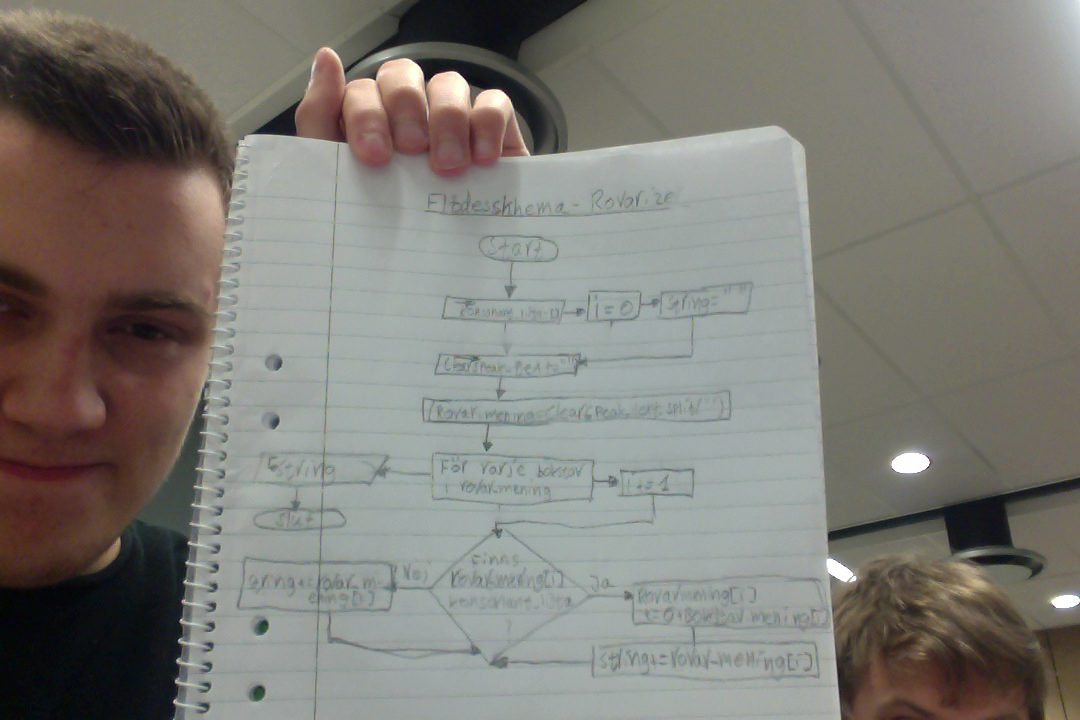 Flödesskhema - Rovarize
Start
konsonant_lista=[]
i = 0
string=" "
clearspeak_text=""
Rovar_mening=clearspeak_text.split(" ")
För varje bokstav
i rovar_mening
i+=1
string
slut
finns
rovar_mening[i]
konsonant_lista
Nej
string+=rovar_m-
ening[i]
Ja
Rovar_mening[i]
string+=rovar_mening[i]